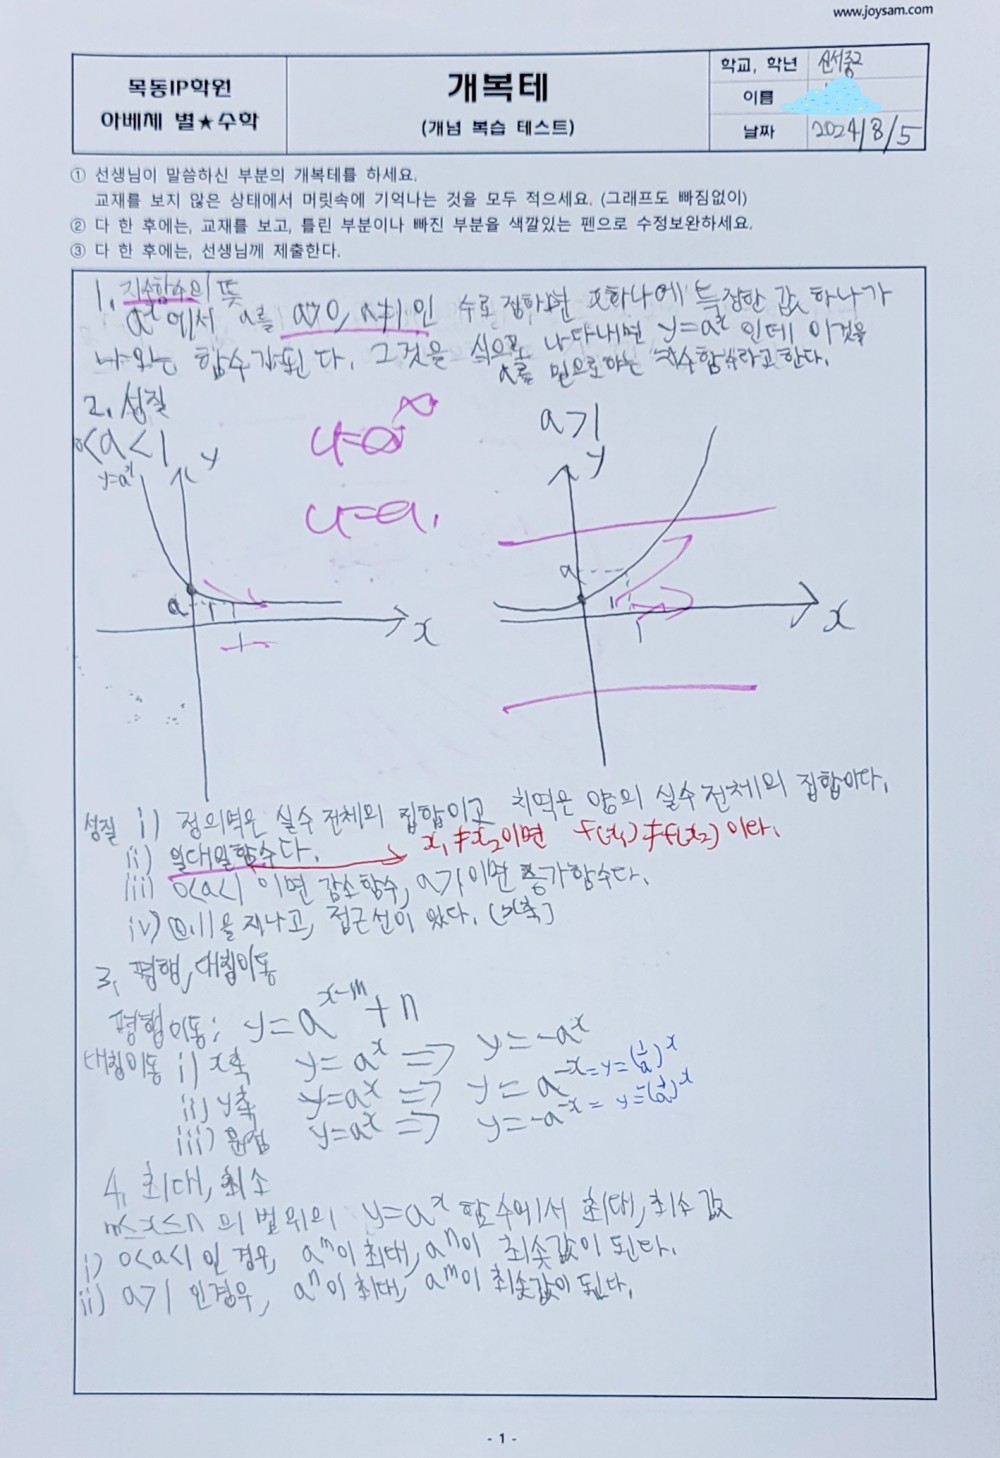 www.joysam.com
목동IP학원
아베체 별★수학
개복테
(개념 복습 테스트)
학교, 학년 신서중2
이름
날짜 2024/8/5
① 선생님이 말씀하신 부분의 개복테를 하세요.
교재를 보지 않은 상태에서 머릿속에 기억나는 것을 모두 적으세요. (그래프도 빠짐없이)
② 다 한 후에는, 교재를 보고, 틀린 부분이나 빠진 부분을 색깔있는 펜으로 수정보완하세요.
③ 다 한 후에는, 선생님께 제출한다.
1. 지수함수의 뜻
aˣ에서 a를 a>0, a≠1인 수로 정하면 x하나에 특정한 값 하나가
나오는 함수가 된다. 그것을 식으로 나타내면 y=aˣ 인데 이것을
a를 밑으로 하는 지수함수라고 한다.
2. 성질
0<a<1
y=aˣ
y
a
1
x
y=a
y=a.
a>1
y
a
1
x
성질 i) 정의역은 실수 전체의 집합이고 치역은 양의 실수 전체의 집합이다.
ii) 일대일함수다. → x₁≠x₂이면 f(x₁)≠f(x₂)이다.
iii) 0<a<1 이면 감소함수, a>1이면 증가함수다.
iv) (0,1)을 지나고, 접근선이 있다. (x축)
3. 평행, 대칭이동
평행이동: y=aˣ⁻ᵐ+n
대칭이동 i) x축 y=aˣ ⇒ y=-aˣ
ii) y축 y=aˣ ⇒ y=a⁻ˣ = y=(1/a)ˣ
iii) 원점 y=aˣ ⇒ y=-a⁻ˣ = y=-(1/a)ˣ
4. 최대, 최소
m≤x≤n 의 범위의 y=aˣ 함수에서 최대, 최소값
i) 0<a<1 인 경우, aᵐ이 최대, aⁿ이 최솟값이 된다.
ii) a>1 인경우, aⁿ이 최대, aᵐ이 최솟값이 된다.
- 1 -